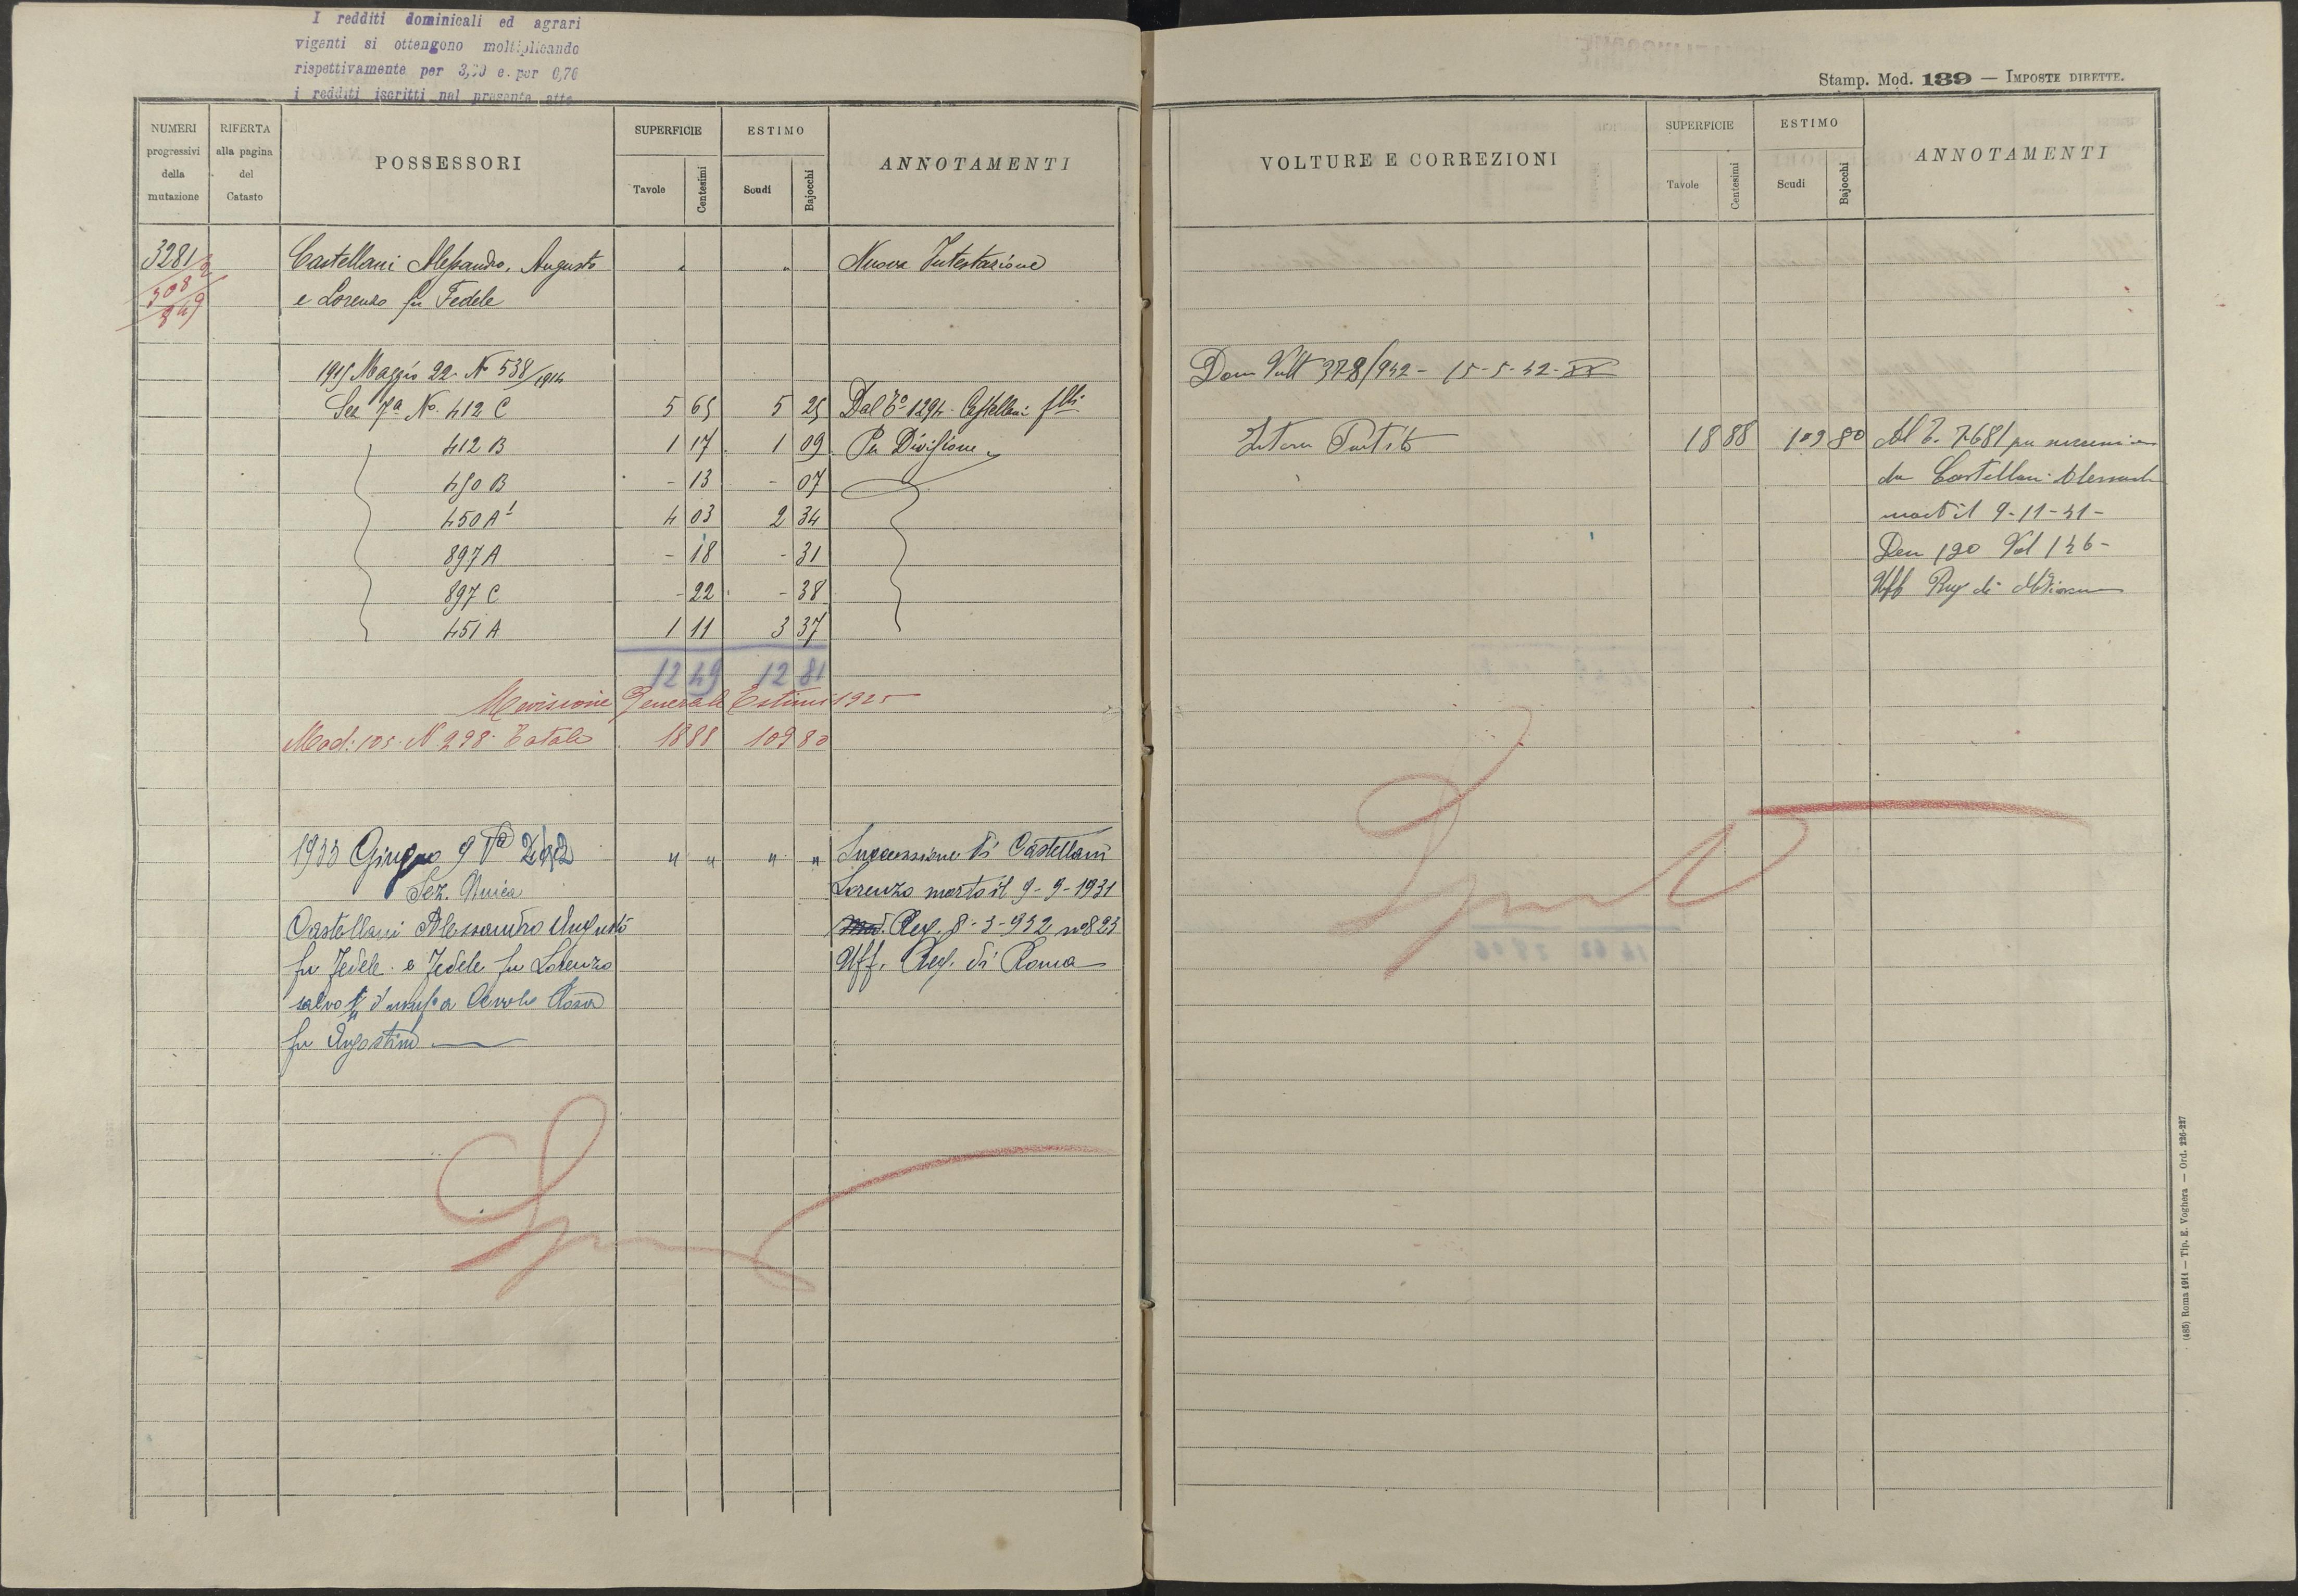 I redditi dominicali ed agrari
vigenti si ottengono moltiplicando
rispettivamente per 3,50 e per 0,76
i redditi iscritti nel presente atto
NUMERI progressivi della mutazione
RIFERTA alla pagina del Catasto
POSSESSORI
SUPERFICIE
Tavole
Centesimi
ESTIMO
Scudi
Bajocchi
ANNOTAMENTI
3281
308
849
Castellani Alessandro, Augusto " " Nuova Intestazione
e Lorenzo fu Fedele
1915 Maggio 22 N 538/1914
Sez 7a No. 412 C 5 65 5 25 Dal To 1294 Castellani flli
412 B 1 17 1 09 Per Divisione
450 B - 13 - 07
450 A1 4 03 2 34
897 A - 18 - 31
897 C - 22 - 38
451 A 1 11 3 37
12 49 12 81
Revisione Generale Estimi 1925
Mod: 105 N 298 Totale 18 88 109 80
1933 Giugno 9 " " " " Successione di Castellani
Sez. Unica Lorenzo morto il 9-9-1931
Castellani Alessandro Augusto Reg. 8-3-932 no 823
fu Fedele e Fedele fu Lorenzo Uff. Reg. di Roma
salvo Rosa
fu Agostino
Stamp. Mod. 189 — IMPOSTE DIRETTE.
VOLTURE E CORREZIONI
SUPERFICIE
Tavole
Centesimi
ESTIMO
Scudi
Bajocchi
ANNOTAMENTI
Dom Volt 378/942 - 15-5-42-XX
Intera Partita 18 88 109 80 Al T. 7681 per successione
da Castellani Alessandro
morto il 9-11-41-
Den 120 Vol 146-
Uff Reg di
(485) Roma 1911 — Tip. E. Voghera — Ord. 226-227